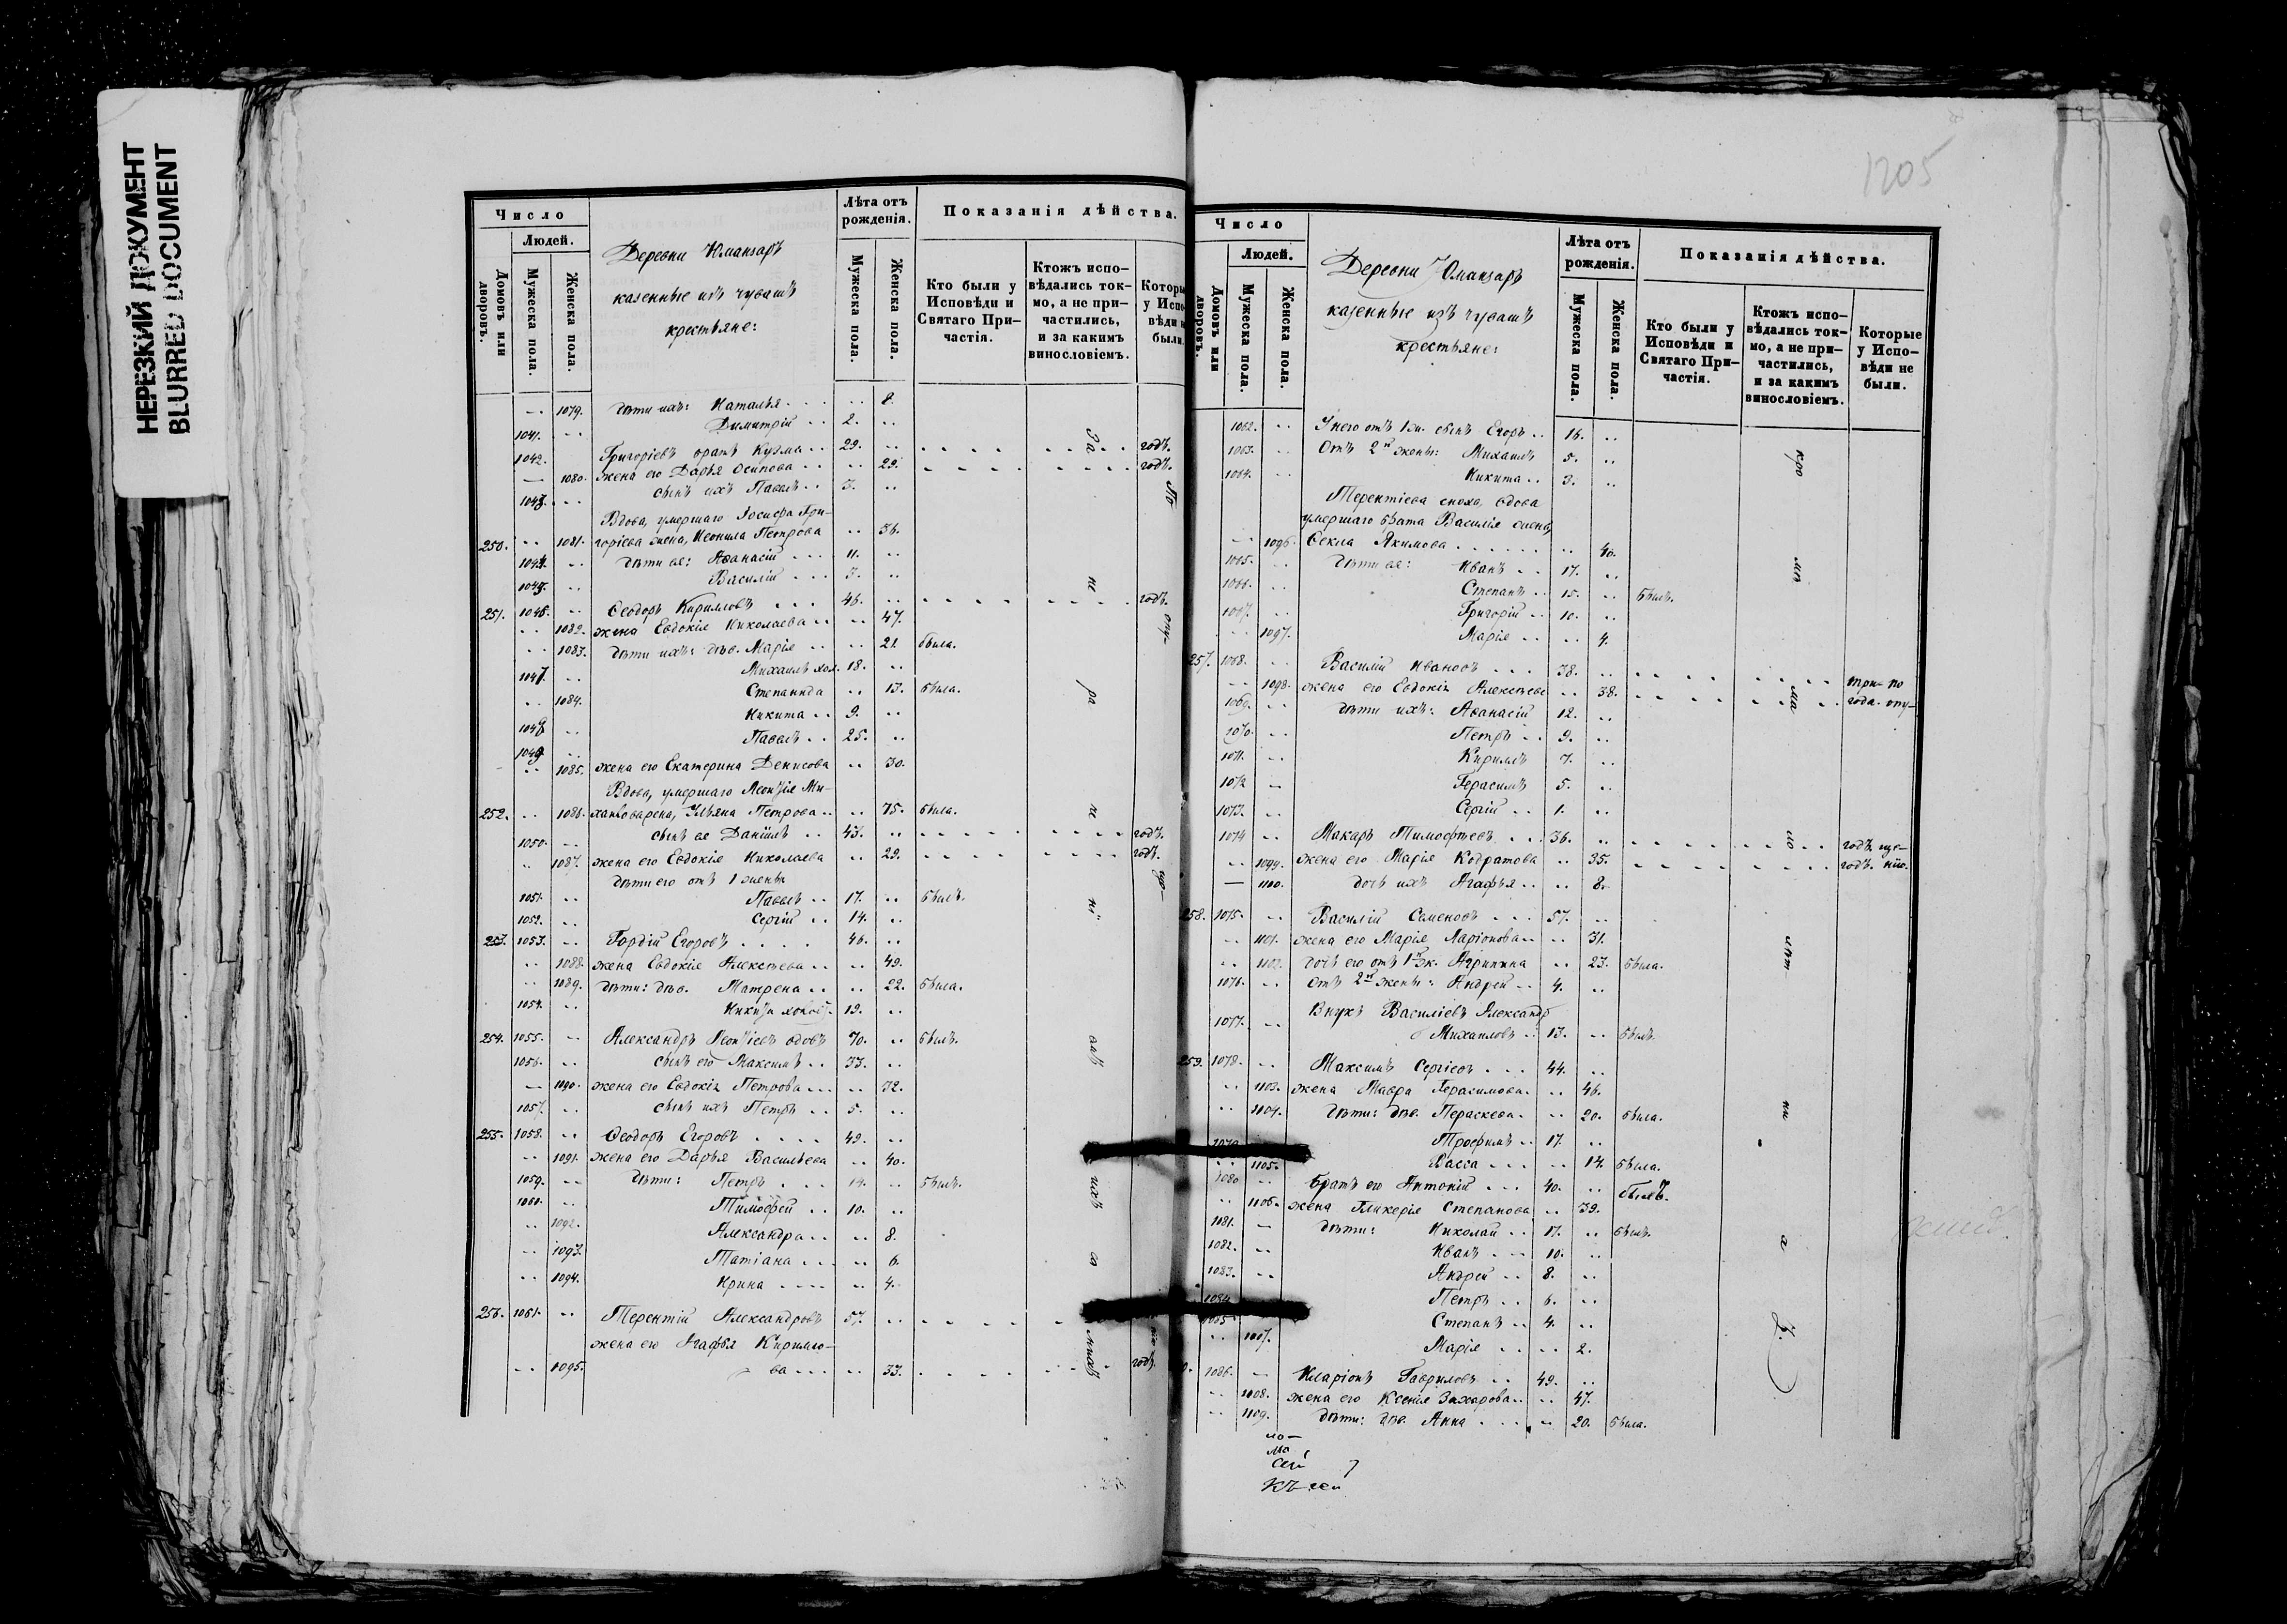 НЕРЕЗКИЙ ДОКУМЕНТ
BLURRED DOCUMENT
Число
Людей.
Домовъ или дворовъ.
Мужеска пола.
Женска пола.
Деревни Юманзаръ
казенные изъ чувашъ
крестьяне:
Лѣта отъ рожденія.
Мужеска пола.
Женска пола.
Показанія дѣйства.
Кто были у Исповѣди и Святаго Причастія.
Ктожъ исповѣдались токмо, а не причастились, и за какимъ винословіемъ.
.. 1079. дѣти ихъ: Наталья . . . .. 8.
1041. .. Димитрій .. 2. ..
1042. .. Григорьевъ братъ Кузма .. 29. .. годъ.
— 1080. жена его Дарья Осипова .. .. 29. годъ.
1043. .. сынъ ихъ Павелъ .. 3. ..
Вдова, умершаго Іосифа Гри-
250. .. 1081. горіева жена, Неонила Петрова .. 36.
1044. .. дѣти ея: Аѳанасій ... 11. ..
1045. .. Василій ... 3. ..
251. 1046. .. Ѳеодоръ Кириловъ ... 46. .. годъ.
.. 1082. жена Евдокія Николаева .. .. 47.
.. 1083. дѣти ихъ: дѣв. Марія .. .. 21. была.
1047. .. Михаилъ хол. 18. ..
.. 1084. Степанида .. 13. была.
1048. .. Никита .. 9. ..
1049. .. Павелъ .. 25. ..
.. 1085. жена его Екатерина Денисова .. 30.
Вдова, умершаго Леонтія Ми-
252. .. 1086. Ульяна Петрова .. .. 75. была.
1050. .. сынъ ея Даніилъ .. 43. .. годъ.
.. 1087. жена его Евдокія Николаева .. 29. годъ.
дѣти его отъ 1 жены
1051. .. Павелъ .. 17. .. былъ.
1052. .. Сергій .. 14. ..
253. 1053. .. Гордій Егоровъ .... 46. ..
.. 1088. жена Евдокія Алексѣева .. .. 49.
.. 1089. дѣти: дѣв. Матрена .. .. 22. была.
1054. .. 19. ..
254. 1055. .. Александръ Леонтіевъ вдовъ 70. .. былъ.
1056. .. сынъ его Максимъ .. 33. ..
— 1090. жена его Евдокія Петрова ... .. 32.
1057. .. сынъ ихъ Петръ .. 5. ..
255. 1058. .. Ѳеодоръ Егоровъ .... 49. ..
.. 1091. жена его Дарья Васильева .. 40.
1059. .. дѣти: Петръ ... 14. .. былъ.
1060. .. Тимоѳей .. 10. ..
.. 1092. Александра .. .. 8.
.. 1093. Татіана ... .. 6.
.. 1094. Ирина .... .. 4.
256. 1061. .. Терентій Александровъ 57. ..
жена его Агафья Кирило-
.. 1095. ва ... .. 33. годъ.
1205
Число
Людей.
Домовъ или дворовъ.
Мужеска пола.
Женска пола.
Деревни Юманзаръ
казенные изъ чувашъ
крестьяне:
Лѣта отъ рожденія.
Мужеска пола.
Женска пола.
Показанія дѣйства.
Кто были у Исповѣди и Святаго Причастія.
Ктожъ исповѣдались токмо, а не причастились, и за какимъ винословіемъ.
Которые у Исповѣди не были.
1062. .. У него отъ 1 ж. сынъ Егоръ .. 16. ..
1063. .. Отъ 2й жены: Михаилъ 5. ..
1064. .. Никита .. 3. ..
Терентіева сноха, вдова
умершаго брата Василія жена,
.. 1096. Ѳекла Якимова ...... .. 40.
1065. .. дѣти ея: Иванъ .. 17. ..
1066. .. Степанъ .. 15. .. былъ.
1067. .. Григорій .. 10. ..
.. 1097. Марія .. .. 4.
257. 1068. .. Василій Ивановъ ... 38. .. три по
.. 1098. жена его Евдокія Алексѣева .. 38. года. опу-
1069. .. дѣти ихъ: Аѳанасій 12. ..
1070. .. Петръ .. 9. ..
1071. .. Кириллъ 7. ..
1072 .. Герасимъ 5. ..
1073. .. Сергій .. 1. ..
1074 .. Макаръ Тимофѣевъ ... 36. .. годъ. ще-
.. 1099. жена его Марія Кодратова .. 35. годъ. нію.
— 1100. дочь ихъ Агафья .. .. 8.
258. 1075. .. Василій Семеновъ ... 57. ..
.. 1101. жена его Марія Ларіонова .. .. 31.
.. 1102. дочь его отъ 1й ж. Агрипина .. 23. была.
1076. .. Отъ 2й жены: Андрей .. 4. ..
Внукъ Василіевъ Александръ
1077. .. Михаиловъ .. 13. .. былъ.
259. 1078. .. Максимъ Сергіевъ ... 44. ..
.. 1103. жена Мавра Герасимова. .. 46.
.. 1104. дѣти: дѣв. Пераскева. .. 20. была.
1079 Трофимъ .. 17. ..
.. 1105. Васса ... .. 14. была.
1080 .. Братъ его Антоній ... 40. .. былъ.
.. 1106. жена Гликерія Степанова .. 39.
1081. — дѣти: Николай .. 17. .. былъ.
1082. .. Иванъ ... 10. ..
1083. .. Андрей .. 8. ..
1084 Петръ .. 6. ..
1085 Степанъ .. 4. ..
.. 1107. Марія .. .. 2.
1086. — Иларіонъ Гавриловъ .. 49. ..
.. 1108. жена его Ксенія Захарова .. .. 47.
.. 1109. дѣти: дѣв. Анна ... .. 20. была.